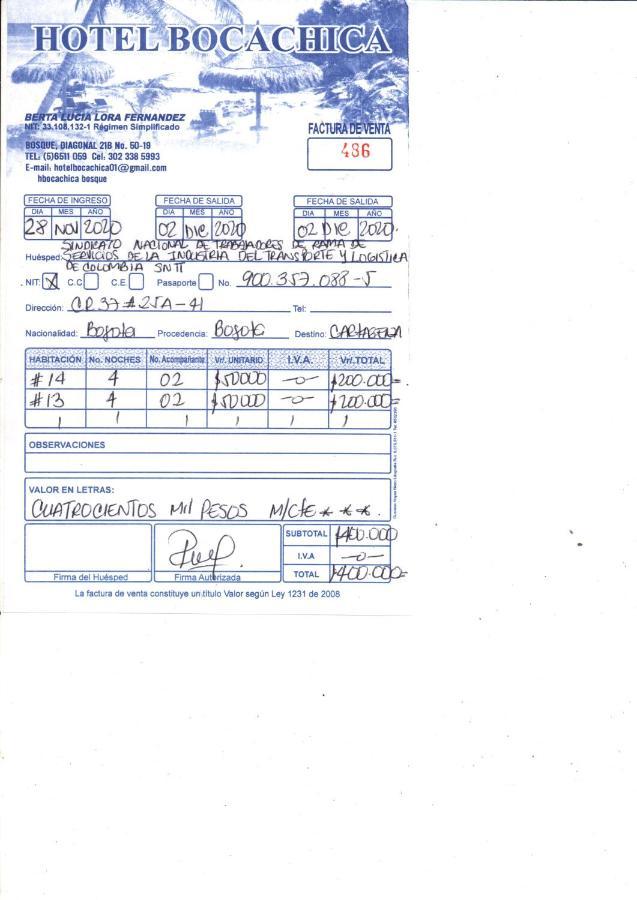 HOTEL BOCACHICA
BERTA LUCIA LORA FERNANDEZ
NIT: 33.108.132-1 Régimen Simplificado
BOSQUE, DIAGONAL 21B No. 50-19
TEL: (5)6511 059 Cel: 302 338 5993
E-mail: hotelbocachica01@gmail.com
hbocachica bosque
FACTURA DE VENTA
436
FECHA DE INGRESO FECHA DE SALIDA FECHA DE SALIDA
DIA MES AÑO DIA MES AÑO DIA MES AÑO
28 NOV 2020 02 DIC 2020 02 DIC 2020.
SINDICATO NACIONAL DE TRABAJADORES DE RAMA DE
Huésped: SERVICIOS DE LA INDUSTRIA DEL TRANSPORTE Y LOGISTICA
DE COLOMBIA SNTT
NIT: X C.C C.E Pasaporte No. 900.357.088-5
Dirección: CR 37 #25A-41 Tel:
Nacionalidad: Bogota Procedencia: Bogota Destino: CARTAGENA
HABITACIÓN No. NOCHES No. Acompañante Vrl. UNITARIO I.V.A. Vrl. TOTAL
#14 4 02 $50000 -0- $200.000=
#13 4 02 $50000 -0- $200.000=
OBSERVACIONES
VALOR EN LETRAS:
CUATROCIENTOS Mil PESOS M/CTE * * *.
SUBTOTAL $400.000
I.V.A -0-
TOTAL $400.000=
Firma del Huésped Firma Autorizada
La factura de venta constituye un título Valor según Ley 1231 de 2008